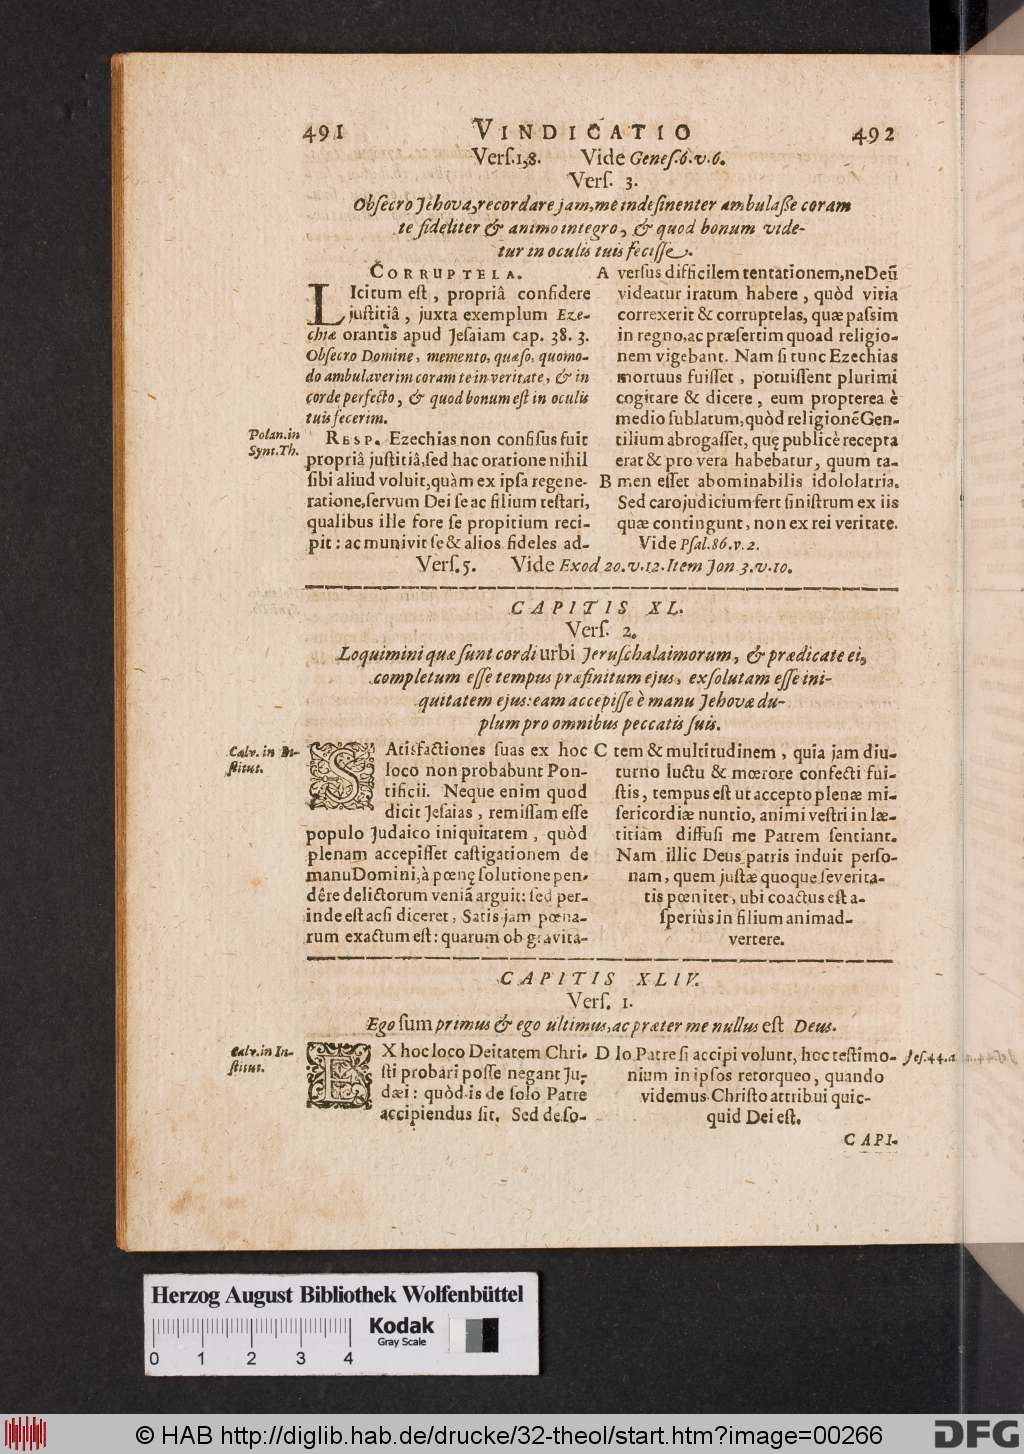 491 VINDICATIO 492
Verſ.1,8. Vide Geneſ.6.v.6.
Verſ. 3.
Obſecro Jehova, recordare jam, me indeſinenter ambulaſſe coram
te fideliter & animo integro, & quod bonum vide-
tur in oculis tuis feciſſe.
CORRUPTELA.
LIcitum eſt, propriâ confidere
juſtitiâ, juxta exemplum Eze-
chiæ orantis apud Jeſaiam cap. 38. 3.
Obſecro Domine, memento, quæſo, quomo-
do ambulaverim coram te in veritate, & in
corde perfecto, & quod bonum eſt in oculis
tuis fecerim.
Polan. in
Synt. Th.
RESP. Ezechias non confiſus fuit
propriâ juſtitiâ, ſed hac oratione nihil
ſibi aliud voluit, quàm ex ipſa regene-
ratione, ſervum Dei ſe ac filium teſtari,
qualibus ille fore ſe propitium reci-
pit: ac munivit ſe & alios fideles ad-
A verſus difficilem tentationem, ne Deũ
videatur iratum habere, quòd vitia
correxerit & corruptelas, quæ paſsim
in regno, ac præſertim quoad religio-
nem vigebant. Nam ſi tunc Ezechias
mortuus fuiſſet, potuiſſent plurimi
cogitare & dicere, eum propterea è
medio ſublatum, quòd religionẽ Gen-
tilium abrogaſſet, quę publicè recepta
erat & pro vera habebatur, quum ta-
B men eſſet abominabilis idololatria.
Sed caro judicium fert ſiniſtrum ex iis
quæ contingunt, non ex rei veritate.
Vide Pſal. 86. v. 2.
Verſ. 5. Vide Exod 20. v. 12. Item Jon. 3. v. 10.
CAPITIS XL.
Verſ. 2.
Loquimini quæ ſunt cordi urbi Jeruſchalaimorum, & prædicate ei,
completum eſſe tempus præfinitum ejus, exſolutam eſſe ini-
quitatem ejus: eam accepiſſe è manu Jehovæ du-
plum pro omnibus peccatis ſuis.
Calv. in In-
ſtitut.
SAtisfactiones ſuas ex hoc
loco non probabunt Pon-
tificii. Neque enim quod
dicit Jeſaias, remiſſam eſſe
populo Judaico iniquitatem, quòd
plenam accepiſſet caſtigationem de
manu Domini, à pœnę ſolutione pen-
dêre delictorum veniã arguit: ſed per-
inde eſt acſi diceret, Satis jam pœna-
rum exactum eſt: quarum ob gravita-
C tem & multitudinem, quia jam diu-
turno luctu & mœrore confecti fui-
ſtis, tempus eſt ut accepto plenæ mi-
ſericordiæ nuntio, animi veſtri in læ-
titiam diffuſi me Patrem ſentiant.
Nam illic Deus patris induit perſo-
nam, quem juſtæ quoque ſeverita-
tis pœnitet, ubi coactus eſt a-
ſperiùs in filium animad-
vertere.
CAPITIS XLIV.
Verſ. 1.
Ego ſum primus & ego ultimus, ac præter me nullus eſt Deus.
Calv. in In-
ſtitut.
EX hoc loco Deitatem Chri-
ſti probari poſſe negant Ju-
dæi: quòd is de ſolo Patre
accipiendus ſit. Sed de ſo-
D lo Patre ſi accipi volunt, hoc teſtimo-
nium in ipſos retorqueo, quando
videmus Chriſto attribui quic-
quid Dei eſt.
Jeſ. 44. a
CAPI-
Herzog August Bibliothek Wolfenbüttel
Kodak
Gray Scale
0 1 2 3 4
© HAB http://diglib.hab.de/drucke/32-theol/start.htm?image=00266
DFG